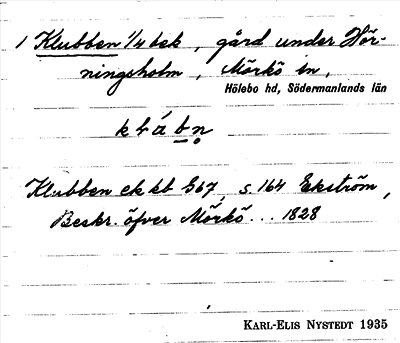 1 Klubben 1/4 bek, gård under Hör-
ningsholm, Mörkö sn,
Hölebo hd, Södermanlands län
Klubben ek kt G67, s. 164 Ekström,
Beskr. öfver Mörkö... 1828
KARL-ELIS NYSTEDT 1935